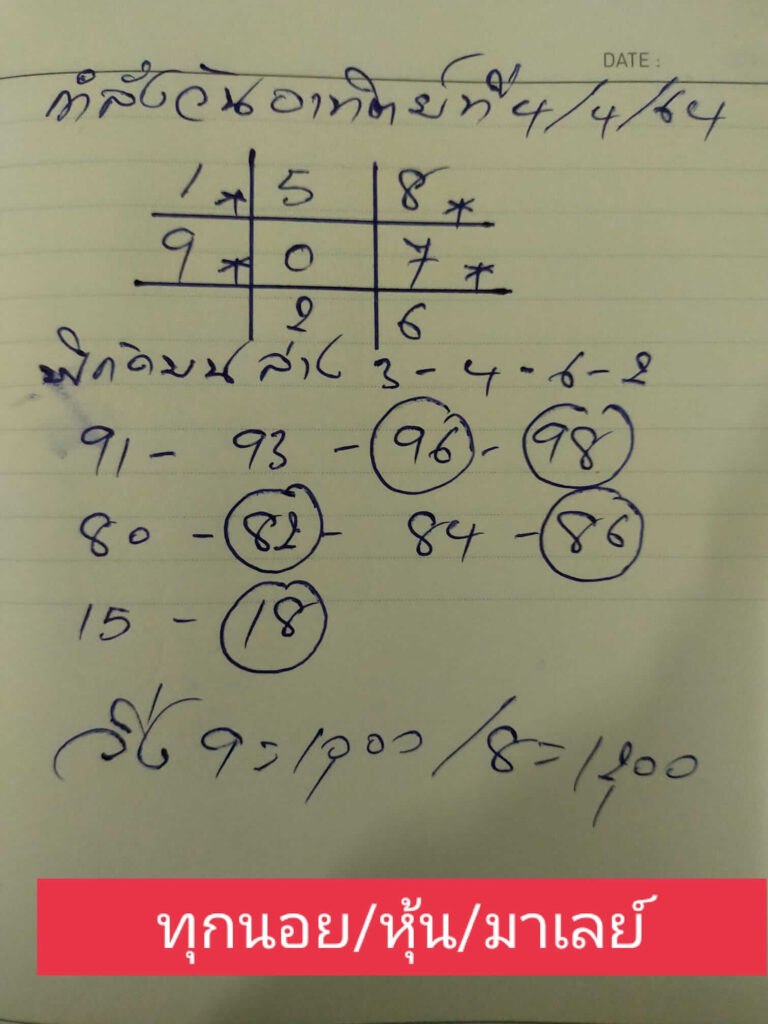 DATE :
กำลังวันอาทิตย์ที่ 4/4/64
1* 5 8*
9* 0 7*
2 6
พิกัดบน ล่าง 3 - 4 - 6 - 2
91 - 93 - 96 - 98
80 - 82 - 84 - 86
15 - 18
วิ่ง 9 = / 8 =
ทุกนอย/หุ้น/มาเลย์